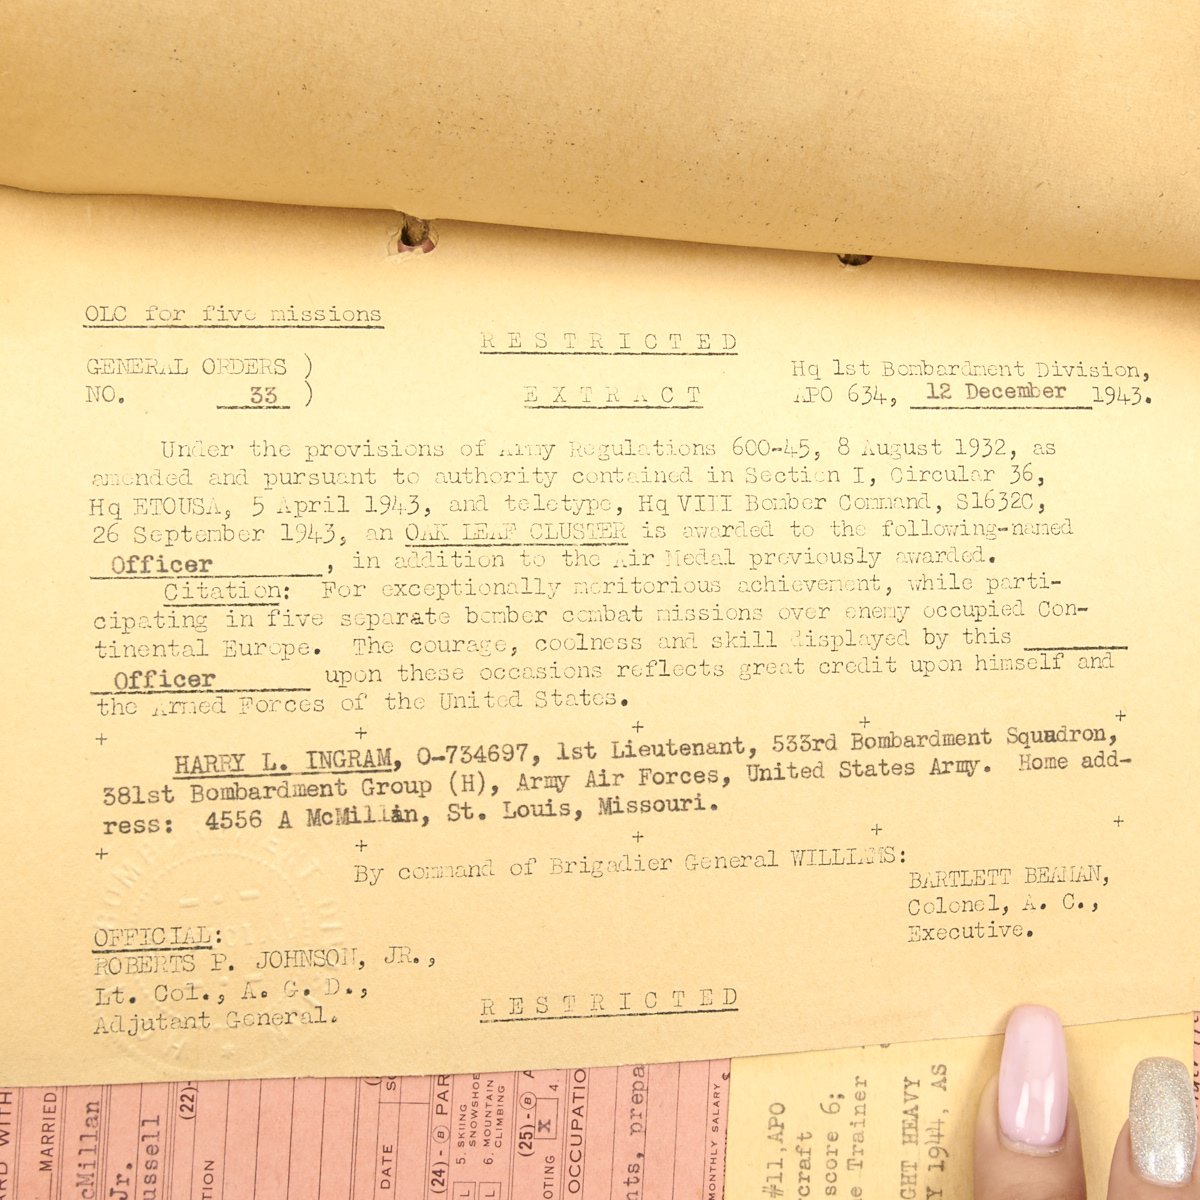 OLC for five missions
R E S T R I C T E D
GENERAL ORDERS )
NO. 33 )
E X T R A C T
Hq 1st Bombardment Division,
APO 634, 12 December 1943.
Under the provisions of Army Regulations 600-45, 8 August 1932, as
amended and pursuant to authority contained in Section I, Circular 36,
Hq ETOUSA, 5 April 1943, and teletype, Hq VIII Bomber Command, S1632C,
26 September 1943, an OAK LEAF CLUSTER is awarded to the following-named
Officer , in addition to the Air Medal previously awarded.
Citation: For exceptionally meritorious achievement, while parti-
cipating in five separate bomber combat missions over enemy occupied Con-
tinental Europe. The courage, coolness and skill displayed by this
Officer upon these occasions reflects great credit upon himself and
the Armed Forces of the United States.
+ + + + +
HARRY L. INGRAM, O-734697, 1st Lieutenant, 533rd Bombardment Squadron,
381st Bombardment Group (H), Army Air Forces, United States Army. Home add-
ress: 4556 A McMillan, St. Louis, Missouri.
+ + + + +
By command of Brigadier General WILLIAMS:
BARTLETT BEAMAN,
Colonel, A. C.,
Executive.
OFFICIAL:
ROBERTS P. JOHNSON, JR.,
Lt. Col., A. G. D.,
Adjutant General.
R E S T R I C T E D
ARD WITH
MARRIED
cMillan
Jr.
ussell
(22)-
TION
DATE
(24)-B PAR
5. SKIING
SNOWSHOE
6. MOUNTAIN
CLIMBING
(25)-B A
OTING X 4
OCCUPATIO
nts, prepa
MONTHLY SALARY $
#11,APO
craft
score 6;
e Trainer
GHT HEAVY
Y 1944, AS